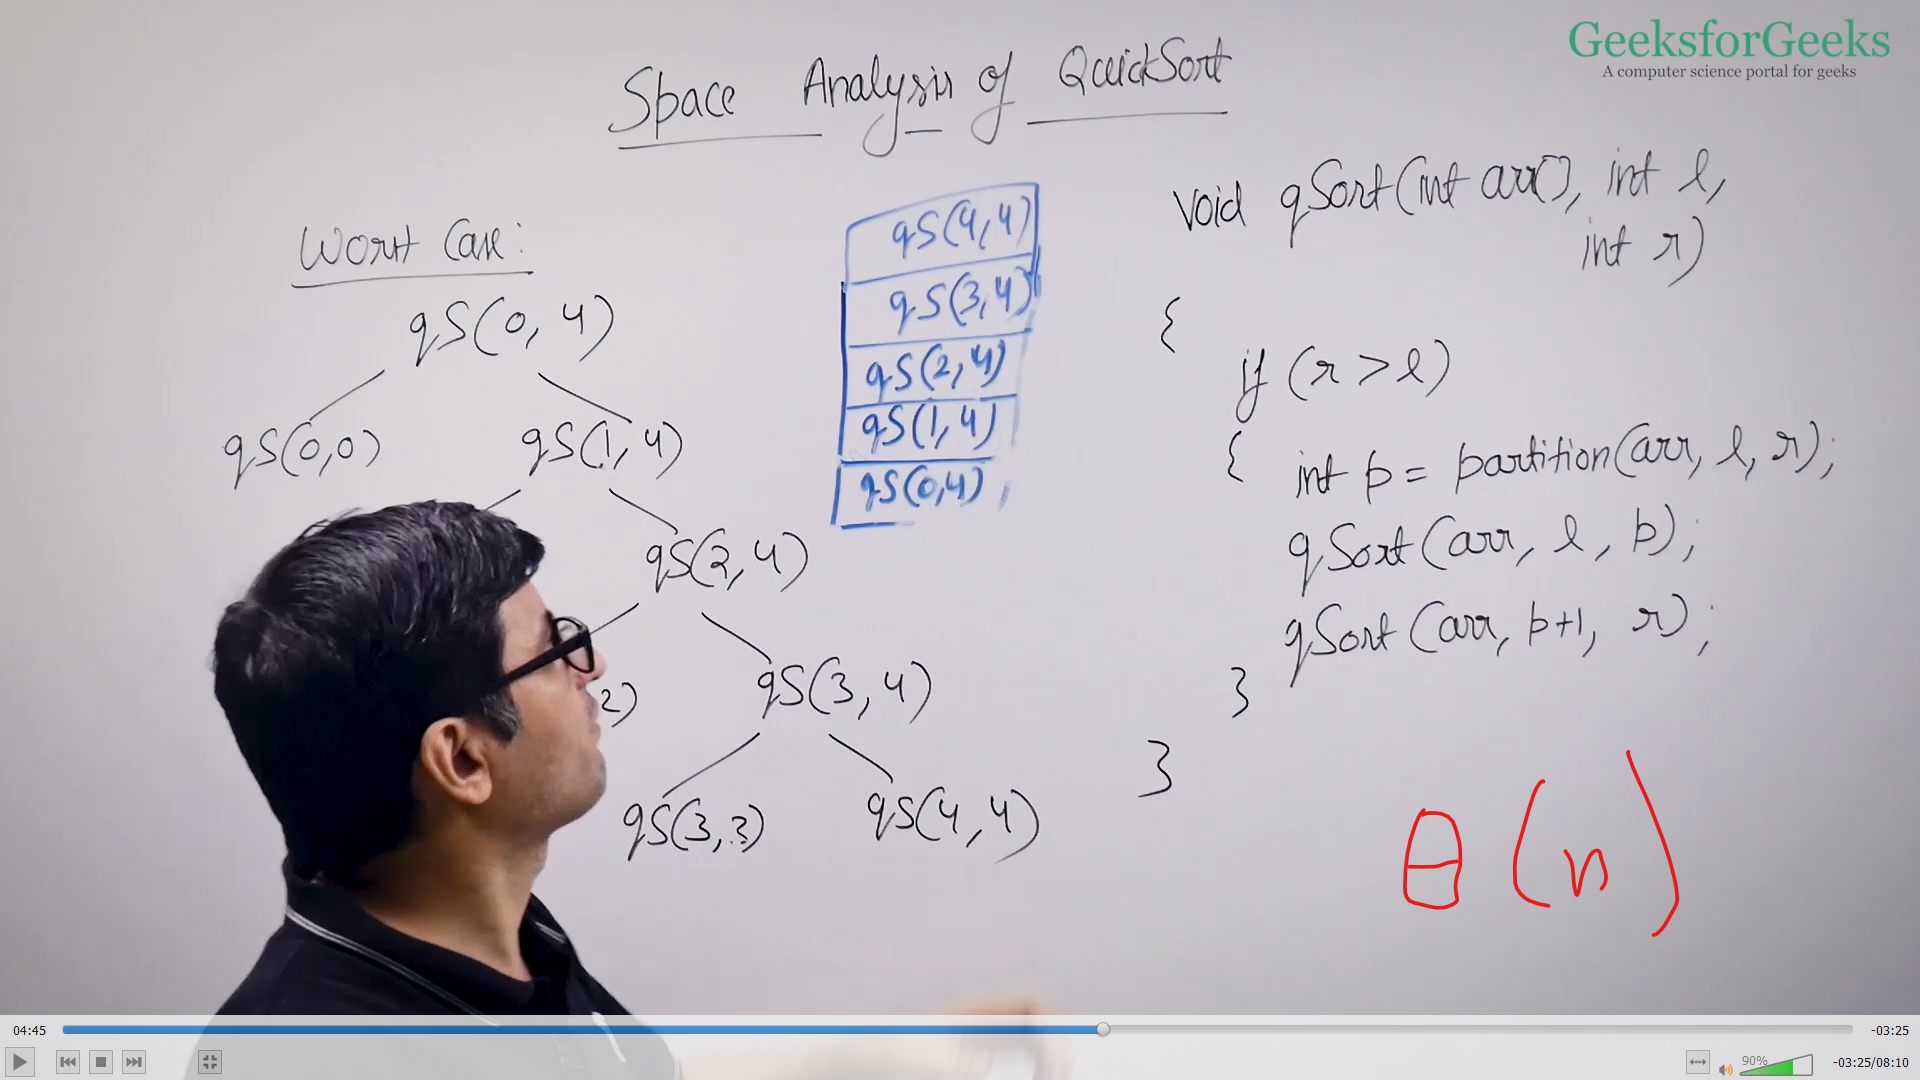 GeeksforGeeks
A computer science portal for geeks
Space Analysis of QuickSort
Worst Case:
qS(0, 4)
qS(0,0) qS(1, 4)
qS(2, 4)
2) qS(3, 4)
qS(3,3) qS(4,4)
qS(4,4)
qS(3,4)
qS(2,4)
qS(1,4)
qS(0,4)
void qSort(int arr[], int l,
int r)
{
if (r > l)
{ int p = partition(arr, l, r);
qSort(arr, l, p);
qSort(arr, p+1, r);
}
}
θ(n)
04:45 -03:25
90% -03:25/08:10